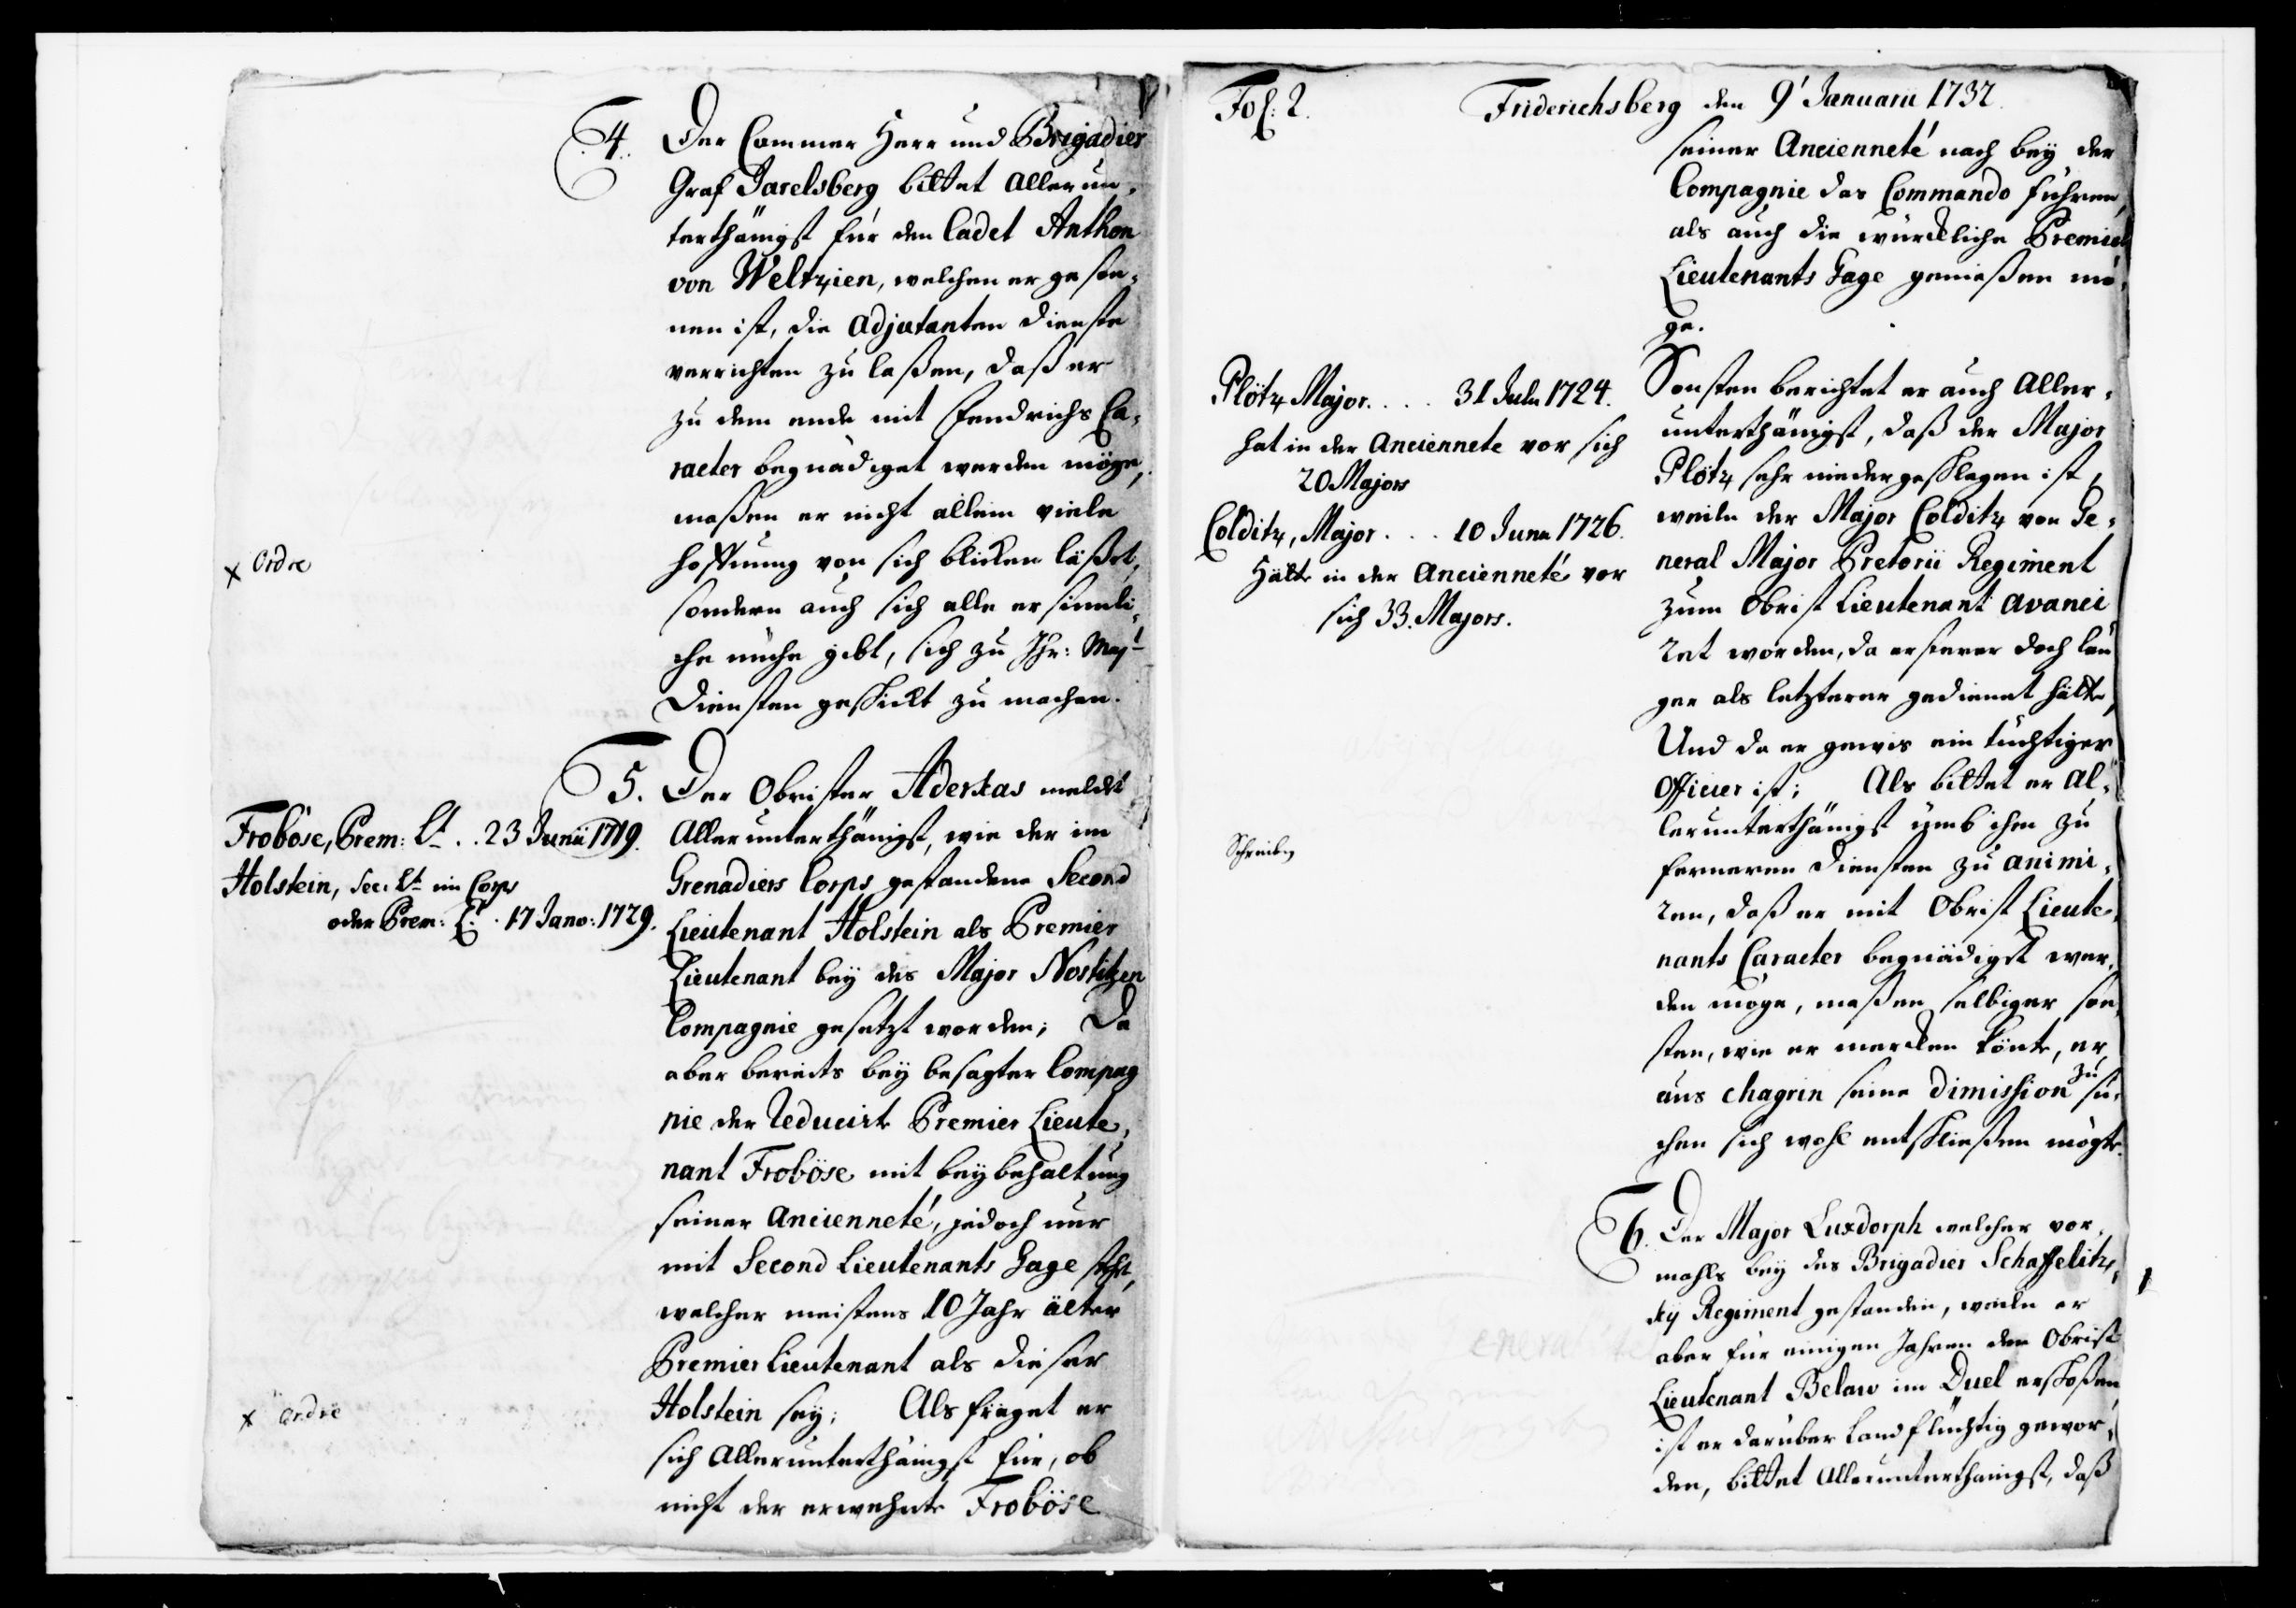 4. Der Cammer Herr und Brigadier
Graf Jarelsberg bittet allerun-
terthänigst für den Cadet Anthon
von Weltzien, welchen er geson-
nen ist, die Adjutanten Dienste
verrichten zu laßen, daß er
zu dem ende mit Fendrichs Ca-
racter begnädiget werden möge,
maßen er nicht allein viele
x Ordre
hoffnung von sich blicken läßet,
sondern auch sich alle ersinnli-
che mühe gibt, sich zu Ihr: Majt
Diensten geschickt zu machen.
5. Der Obrister Aderkas meldet
Froböse, Prem: Lt. . . 23 Junii 1719.
Allerunterthänigst, wie der im
Holstein, Sec: Lt im Corps
Grenadiers Corps gestandene Second
oder Prem: Lt. 17 Janv: 1729.
Lieutenant Holstein als Premier
Lieutenant bey des Major Nostitzen
Compagnie gesetzt worden; Da
aber bereits bey besagter Compag
nie der Reducirte Premier Lieute-
nant Froböse mit beybehaltung
seiner Ancienneté, jedoch nur
mit Second Lieutenants Gage steht,
welcher meistens 10 Jahr älter
Premier Lieutenant als dieser
Holstein sey; Als fraget er
x Ordre
sich Allerunterthänigst für, ob
nicht der erwehnte Froböse
Fol: 2.
Friderichsberg den 9' Januarii 1732.
seiner Ancienneté nach bey der
Compagnie das Commando führen,
als auch die würckliche Premier
Lieutenants Gage genießen mö-
ge.
Plötz Major. . . . 31 Julii 1724.
hat in der Anciennete vor sich
20 Majors
Colditz, Major . . . 10 Junii 1726.
Hätte in der Ancienneté vor
sich 33. Majors.
Sonsten berichtet er auch Aller-
unterthänigst, daß der Major
Plötz sehr niedergeschlagen ist,
weiln der Major Colditz von Ge-
neral Major Pretorii Regiment
zum Obrist Lieutenant avanci
ret worden, da ersterer doch län
ger als letzterer gedienet hätte,
Und da er gewis ein tüchtiger
Officier ist; Als bittet er Al-
lerunterthänigst ümb ihm zu
Schreiben
ferneren Diensten zu animi-
ren, daß er mit Obrist Lieute-
nants Caracter begnädiget wer-
den möge, maßen selbiger son-
sten, wie er mercken könte, er
aus chagrin seine Dimission zu su-
chen sich wohl entschließen mögte.
6. Der Major Luxdorph welcher vor-
mahls bey des Brigadier Schaffelitz-
ky Regiment gestanden, weiln er
aber für einigen Jahren den Obrist
Lieutenant Below im Duel erschoßen
ist er darüber Landflüchtig gewor-
den, bittet Allerunterthänigst, daß